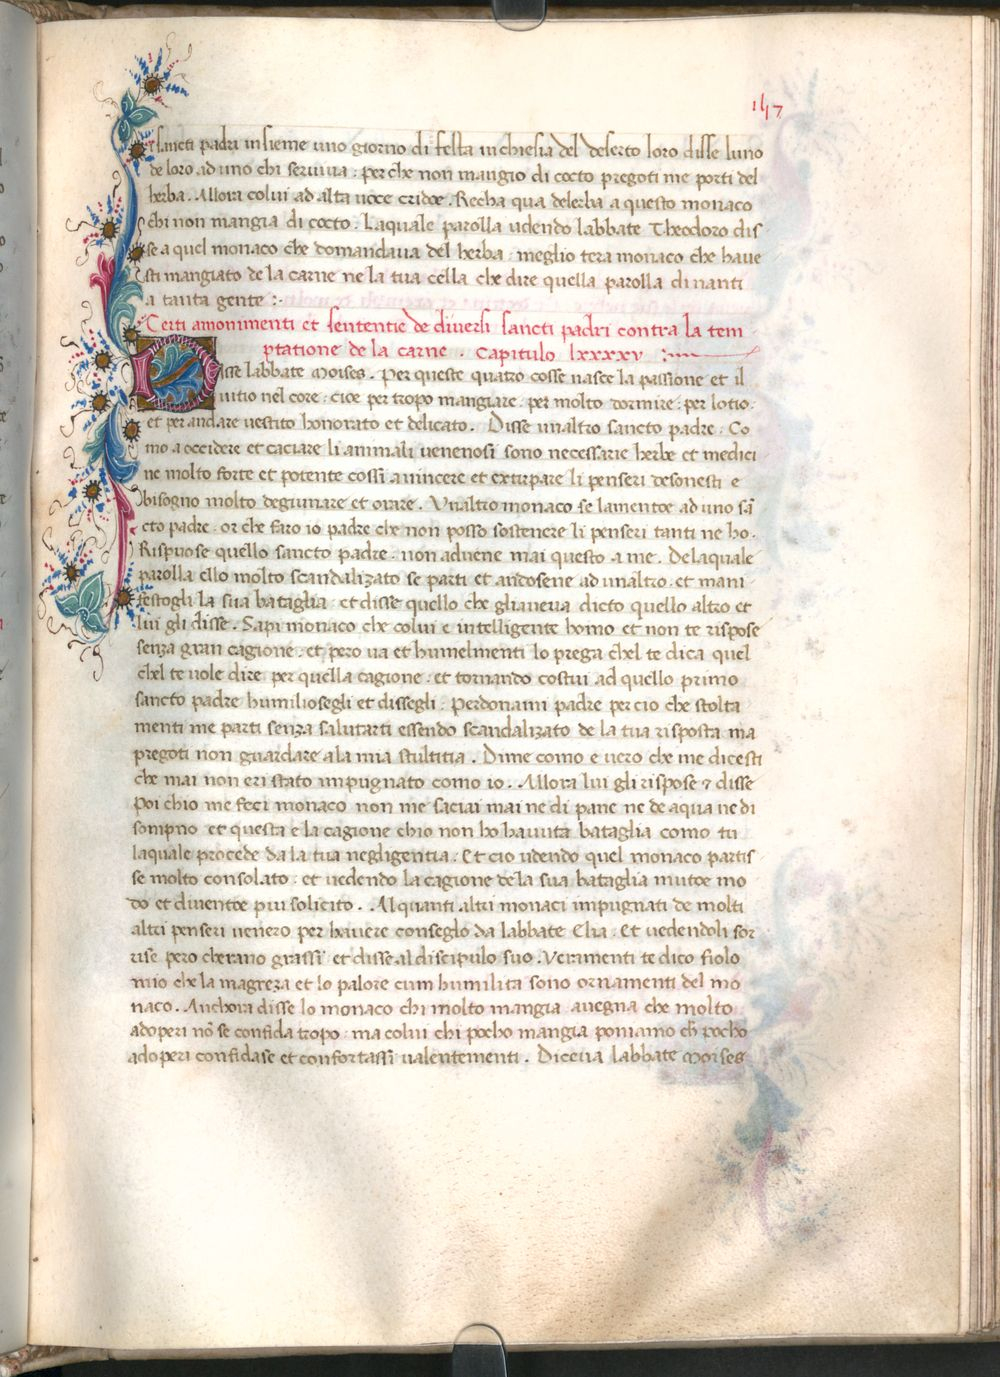 147
sancti padri insieme uno giorno di festa in chiesia del deserto loro disse luno
de loro ad uno chi seruiua : perche non mangio di cocto pregoti me porti del
herba . Allora colui ad alta uoce cridoe . Recha qua delerba a questo monaco
chi non mangia di cocto . Laquale parolla udendo labbate Theodoro dis
se a quel monaco che domandaua del herba : meglio tera monaco che haue
sti mangiato de la carne ne la tua cella che dire quella parolla di nanti
a tanta gente :
Certi amonimenti et sententie de diuersi sancti padri contra la tem
ptatione de la carne . Capitulo lxxxxv
Disse labbate Moises . Per queste quatro cosse nasce la passione et il
uitio nel core : cioe per tropo mangiare : per molto dormire : per lotio :
et per andare uestito honorato et delicato . Disse unaltro sancto padre . Co
mo a occidere et caciare li animali uenenosi sono necessarie herbe et medici
ne molto forte et potente cossi a uincere et extirpare li penseri desonesti e
bisogno molto degiunare et orare . Unaltro monaco se lamentoe ad uno sã
cto padre : or che faro io padre che non posso sostenere li penseri tanti ne ho .
Rispuose quello sancto padre : non aduene mai questo a me . Delaquale
parolla ello molto scandalizato se parti et andosene ad unaltro : et mani
festogli la sua bataglia : et disse quello che gliaueua dicto quello altro et
lui gli disse . Sapi monaco che colui e intelligente homo et non te rispose
senza gran cagione : et pero ua et humelmenti lo prega chel te dica quel
chel te uole dire per quella cagione : et tornando costui ad quello primo
sancto padre humiliosegli et dissegli : Perdonami padre per cio che stolta
menti me parti senza salutarti essendo scandalizato de la tua risposta ma
pregoti non guardare ala mia stultitia . Dime como e uero che me dicesti
che mai non eri stato impugnato como io . Allora lui gli rispose & disse
Poi chio me feci monaco non me saciai mai ne di pane ne de aqua ne di
sompno et questa e la cagione chio non ho hauuta bataglia como tu
laquale procede da la tua negligentia . Et cio udendo quel monaco partis
se molto consolato : et uedendo la cagione de la sua bataglia mutoe mo
do et diuentoe piu solicito . Alquanti altri monaci impugnati de molti
altri penseri uenero per hauere conseglo da labbate Elia . Et uedendoli sor
rise pero cherano grassi et disse al discipulo suo . Veramenti te dico fiolo
mio che la magreza et lo palore cum humilita sono ornamenti del mo
naco . Anchora disse lo monaco chi molto mangia auegna che molto
adoperi nõ se confida tropo : ma colui chi pocho mangia poniamo ch pocho
adoperi confidase et confortassi ualentementi . Diceua labbate Moises